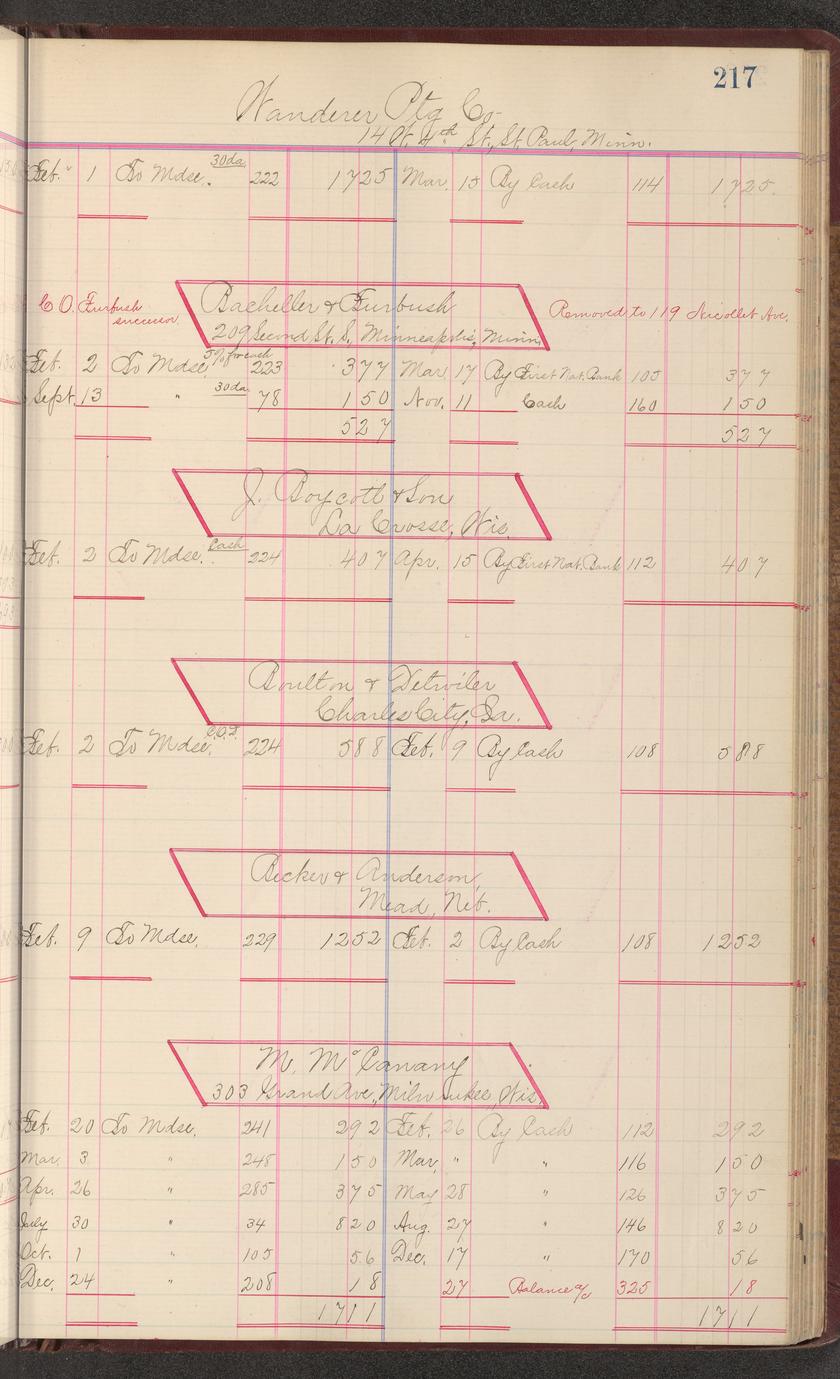 217
Wanderer Ptg Co.
14 W. 4th St, St. Paul, Minn.
Feb. 1 To Mdse. 30da. 222 1725 Mar. 15 By Cash 114 1725
C O. Furbush successor
Bacheller & Furbush
209 Second St. S., Minneapolis, Minn.
Removed to 119 Nicollet Ave.
Feb. 2 To Mdse. 5% for cash 223 377 Mar 17 By First Nat. Bank 105 377
Sept. 13 " 30da. 78 150 Nov. 11 Cash 160 150
527 527
J. Boycott & Son
La Crosse, Wis.
Feb. 2 To Mdse. Cash 224 407 Apr. 15 By First Nat. Bank 112 407
Boulton & Detwiler
Charles City, Ia.
Feb. 2 To Mdse. 224 588 Feb. 9 By Cash 108 588
Becker & Anderson,
Mead, Neb.
Feb. 9 To Mdse. 229 1252 Feb. 2 By Cash 108 1252
M. McCanany
303 Grand Ave., Milwaukee, Wis.
Feb. 20 To Mdse. 241 292 Feb. 26 By Cash 112 292
Mar. 3 " 248 150 Mar. " " 116 150
Apr. 26 " 285 375 May 28 " 126 375
July 30 " 34 820 Aug. 27 " 146 820
Oct. 1 " 105 56 Dec. 17 " 170 56
Dec. 24 " 208 18 27 Balance a/c 325 18
1711 1711